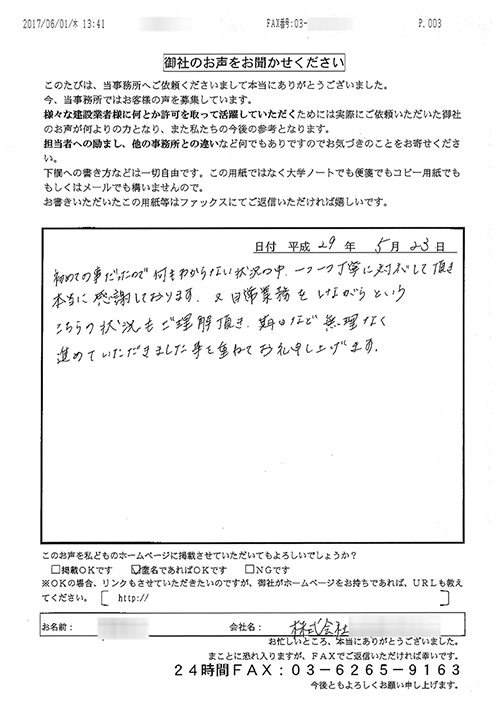 2017/06/01/木 13:41 FAX番号:03- P.003
御社のお声をお聞かせください
このたびは、当事務所へご依頼くださいまして本当にありがとうございました。
今、当事務所ではお客様の声を募集しています。
様々な建設業者様に何とか許可を取って活躍していただくためには実際にご依頼いただいた御社
のお声が何よりの力となり、また私たちの今後の参考となります。
担当者への励まし、他の事務所との違いなど何でもありですのでお気づきのことをお寄せくださ
い。
下欄への書き方などは一切自由です。この用紙ではなく大学ノートでも便箋でもコピー用紙でも
もしくはメールでも構いませんので。
お書きいただいたこの用紙等はファックスにてご返信いただければ嬉しいです。
日付 平成 29 年 5月 23日
初めての事だったので何もわからない状況の中、一つ一つ丁寧に対応して頂き
本当に感謝しております。又日常業務をしながらという
こちらの状況もご理解頂き、期日など無理なく
進めていただきました事を重ねてお礼申し上げます。
このお声を私どものホームページに掲載させていただいてもよろしいでしょうか?
□掲載OKです ☑匿名であればOKです □NGです
※OKの場合、リンクもさせていただきたいのですが、御社がホームページをお持ちであれば、URLも教え
てください。 [ http:// ]
お名前: 会社名: 株式会社
お忙しいところ、本当にありがとうございました。
まことに恐れ入りますが、FAXでご返信いただければ幸いです。
24時間FAX:03-6265-9163
今後ともよろしくお願い申し上げます。